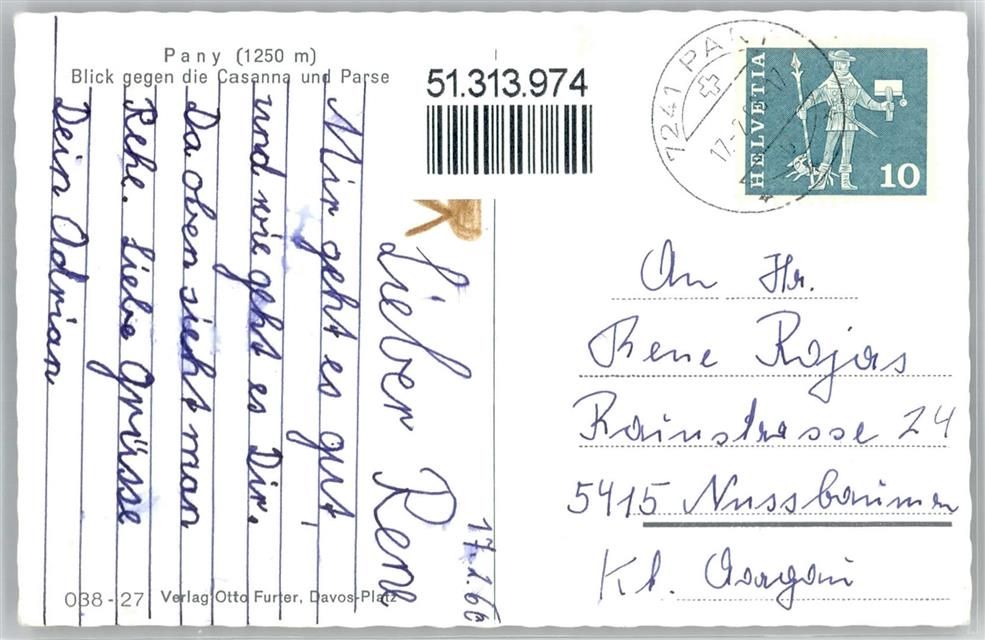 Pany (1250 m)
Blick gegen die Casanna und Parse
51.313.974
7241 PANY
HELVETIA
10
17.1.66
Lieber Rene
Mir geht es gut
und wie geht es Dir.
Da oben sieht man
Rehe. Liebe Grüsse
Dein Adrian
An Hr.
Rene Rojas
Rainstrasse 24
5415 Nussbaumen
Kt. Aargau
038-27 Verlag Otto Furter, Davos-Platz